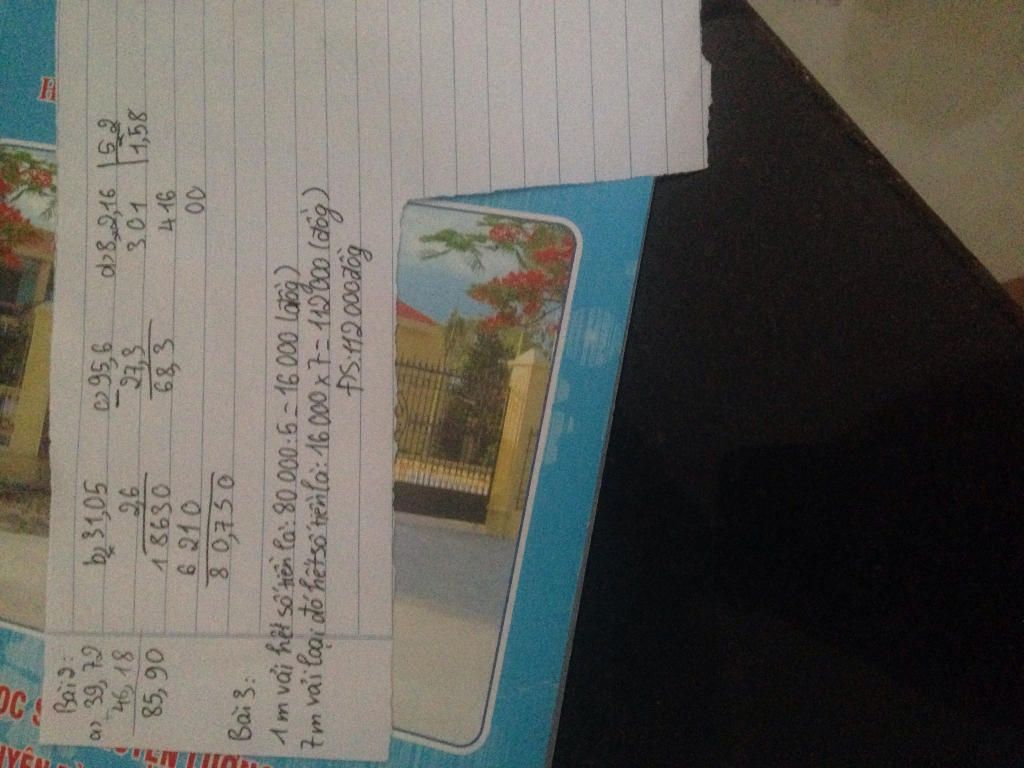 Bài 2:
a) 39,72 b) 31,05 c) 95,6 d) 8,2,16 5,2
46,18 26 - 27,3 301 1,58
85,90 18630 68,3 416
6210 00
80,730
Bài 3:
1 m vải hết số tiền là: 80.000:5 = 16 000 (đồng)
7 m vải loại đó hết số tiền là: 16 000 x 7 = 112 000 (đồg)
ĐS: 112 000 đồg